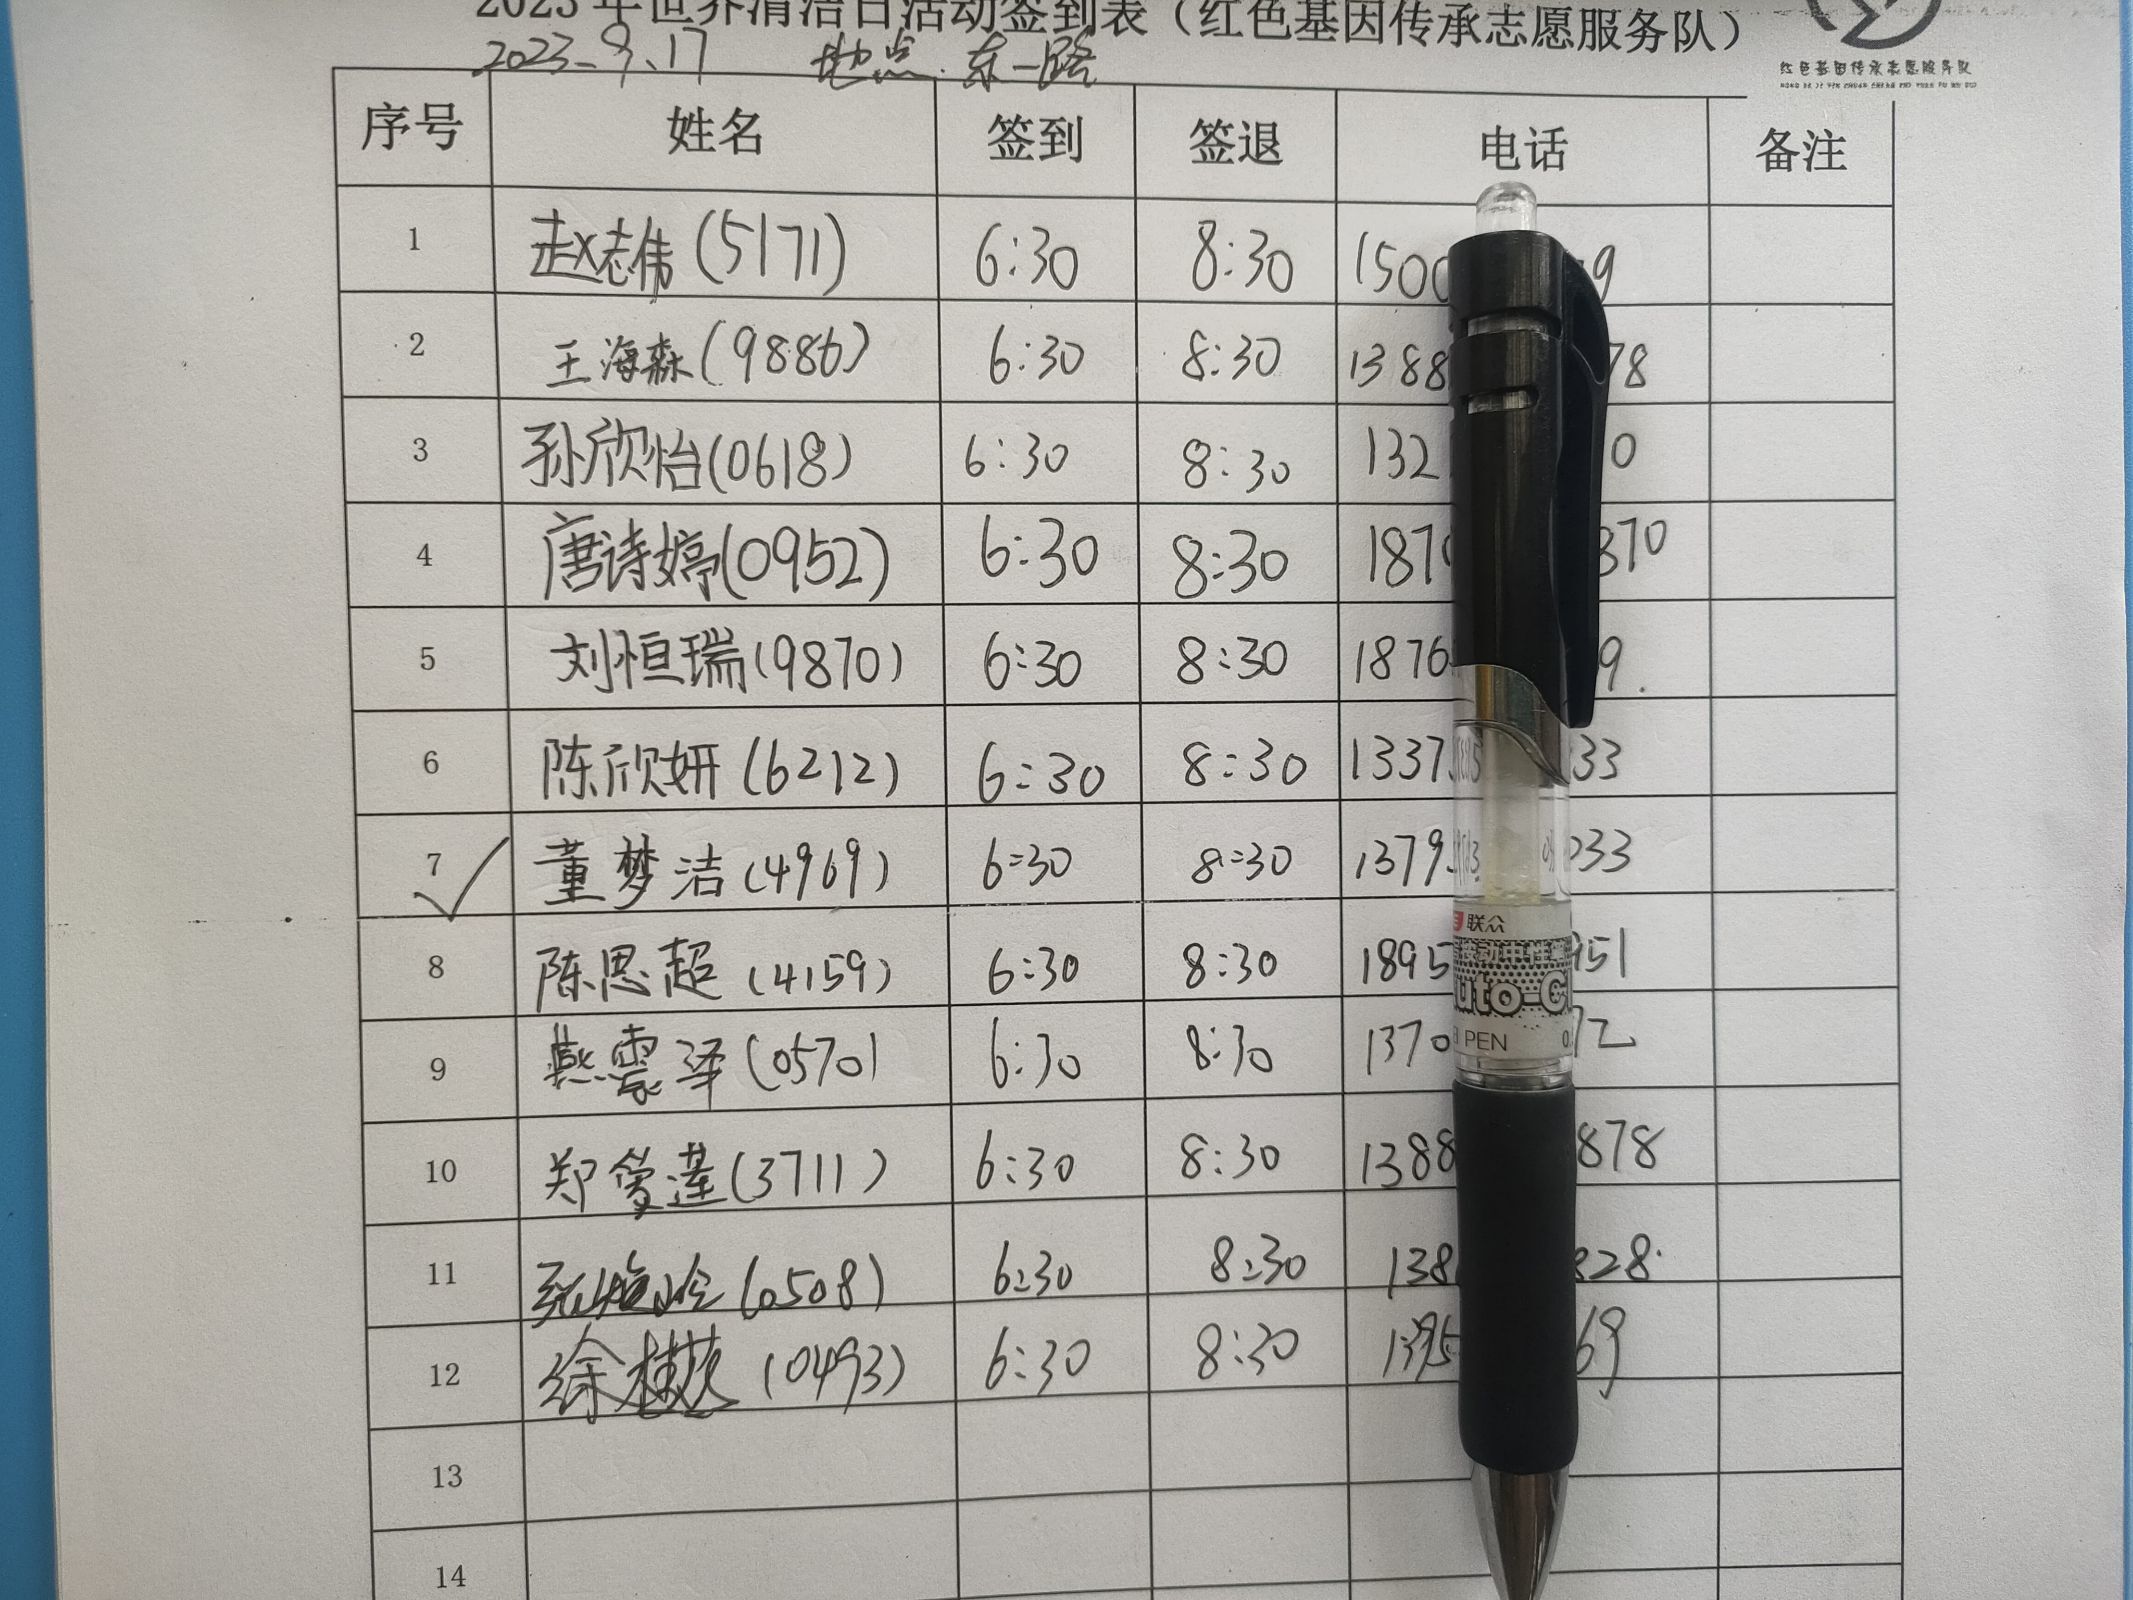 2023年世界清洁日活动签到表（红色基因传承志愿服务队）
2023.9.17 地点.东一路
红色基因传承志愿服务队
HONG SE JI YIN CHUAN CHENG ZHI YUAN FU WU DUI
序号 姓名 签到 签退 电话 备注
1 赵志伟(5171) 6:30 8:30 150 9
2 王海森(9886) 6:30 8:30 1388 78
3 孙欣怡(0618) 6:30 8:30 132 0
4 唐诗婷(0952) 6:30 8:30 187 370
5 刘恒瑞(9870) 6:30 8:30 1876 9.
6 陈欣妍(6212) 6:30 8:30 1337 33
7 董梦洁(4969) 6:30 8:30 1379 033
8 陈思超(4159) 6:30 8:30 1895 951
9 燕震泽(0570) 6:30 8:30 1370 72
10 郑 (3711) 6:30 8:30 1388 878
11 (0508) 6:30 8:30 138 828
12 徐 (0493) 6:30 8:30 1395 69
13
14
联众
PEN